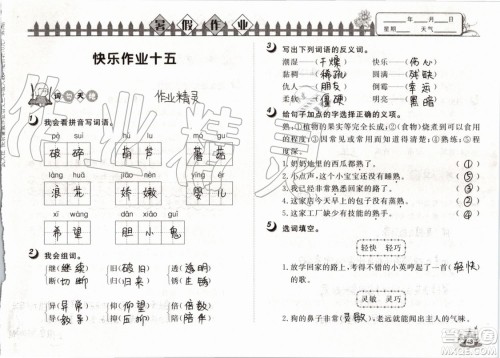 暑假作业
快乐作业十五
作业精灵
1. 我会看拼音写词语。
pò suì hú lu mó gu
破碎 葫芦 蘑菇
làng huā jiāo nèn yīng ér
浪花 娇嫩 婴儿
xī wàng dǎn xiǎo guǐ
希望 胆小鬼
2. 我会组词。
继(继续) 旧(破旧) 透(透明)
断(切断) 归(归来) 锈(生锈)
异(异常) 抑(抑郁) 倍(倍数)
导(教导) 仰(仰卧) 陪(陪伴)
______年____月____日
星期____ 天气______
3. 写出下列词语的反义词。
潮湿——(干燥) 快乐——(伤心)
黏稠——(稀疏) 圆满——(残缺)
柔软——(僵硬) 明亮——(黑暗)
4. 给句子加点的字选择正确的义项。
熟:①植物的果实等完全长成;②(食物)烧煮到可以食用
的程度;③因常见或常用而知道得清楚;④熟练;⑤
程度深。
1. 奶奶地里的西瓜都熟了。 (①)
2. 小点声,这个小宝宝还没有睡熟。 (⑤)
3. 我已经非常熟悉回家的路了。 (③)
4. 这家店今天早上的包子没有蒸熟。 (②)
5. 这家工厂缺少有技术的熟手。 (④)
5. 选词填空。
轻快 轻巧
1. 放学回家的路上,考得不错的小英哼起了一首(轻快)
的歌。
灵敏 灵巧
2. 狗的鼻子非常(灵敏),老远就能闻出主人的气味。